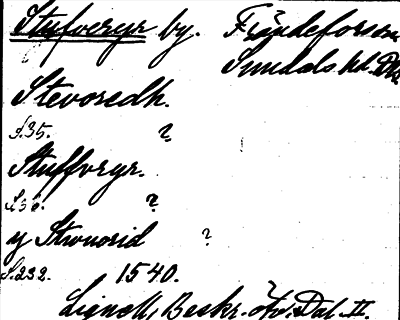 Stufveryr by. Frändefors sn
Sundals hd. Dls
Stevoredh.
S.35. ?
Stuffvryr.
S.36. ?
y Strwuorid ?
S.232. 1540.
Lignell, Beskr. öfv. Dal. II.